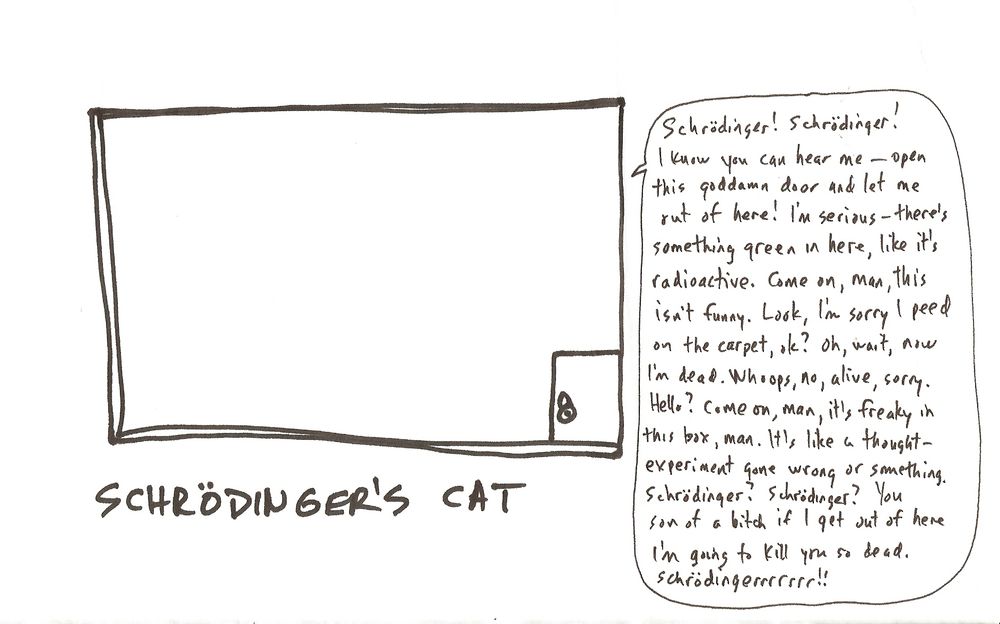 Schrödinger! Schrödinger!
I know you can hear me — open
this goddamn door and let me
out of here! I'm serious — there's
something green in here, like it's
radioactive. Come on, man, this
isn't funny. Look, I'm sorry I peed
on the carpet, ok? Oh, wait, now
I'm dead. Whoops, no, alive, sorry.
Hello? Come on, man, it's freaky in
this box, man. It's like a thought-
experiment gone wrong or something.
Schrödinger? Schrödinger? You
son of a bitch if I get out of here
I'm going to kill you so dead.
Schrödingerrrrrrrr!!
SCHRÖDINGER'S CAT